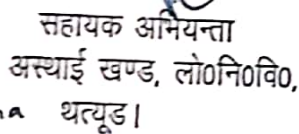 सहायक अभियन्ता
अस्थाई खण्ड, लो०नि०वि०,
थत्यूड।